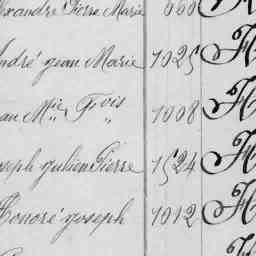 exandre Pierre Marie 660
André jean Marie 1025
an Mie Fois 1008
seph julien Pierre 1524
Honoré joseph 1012